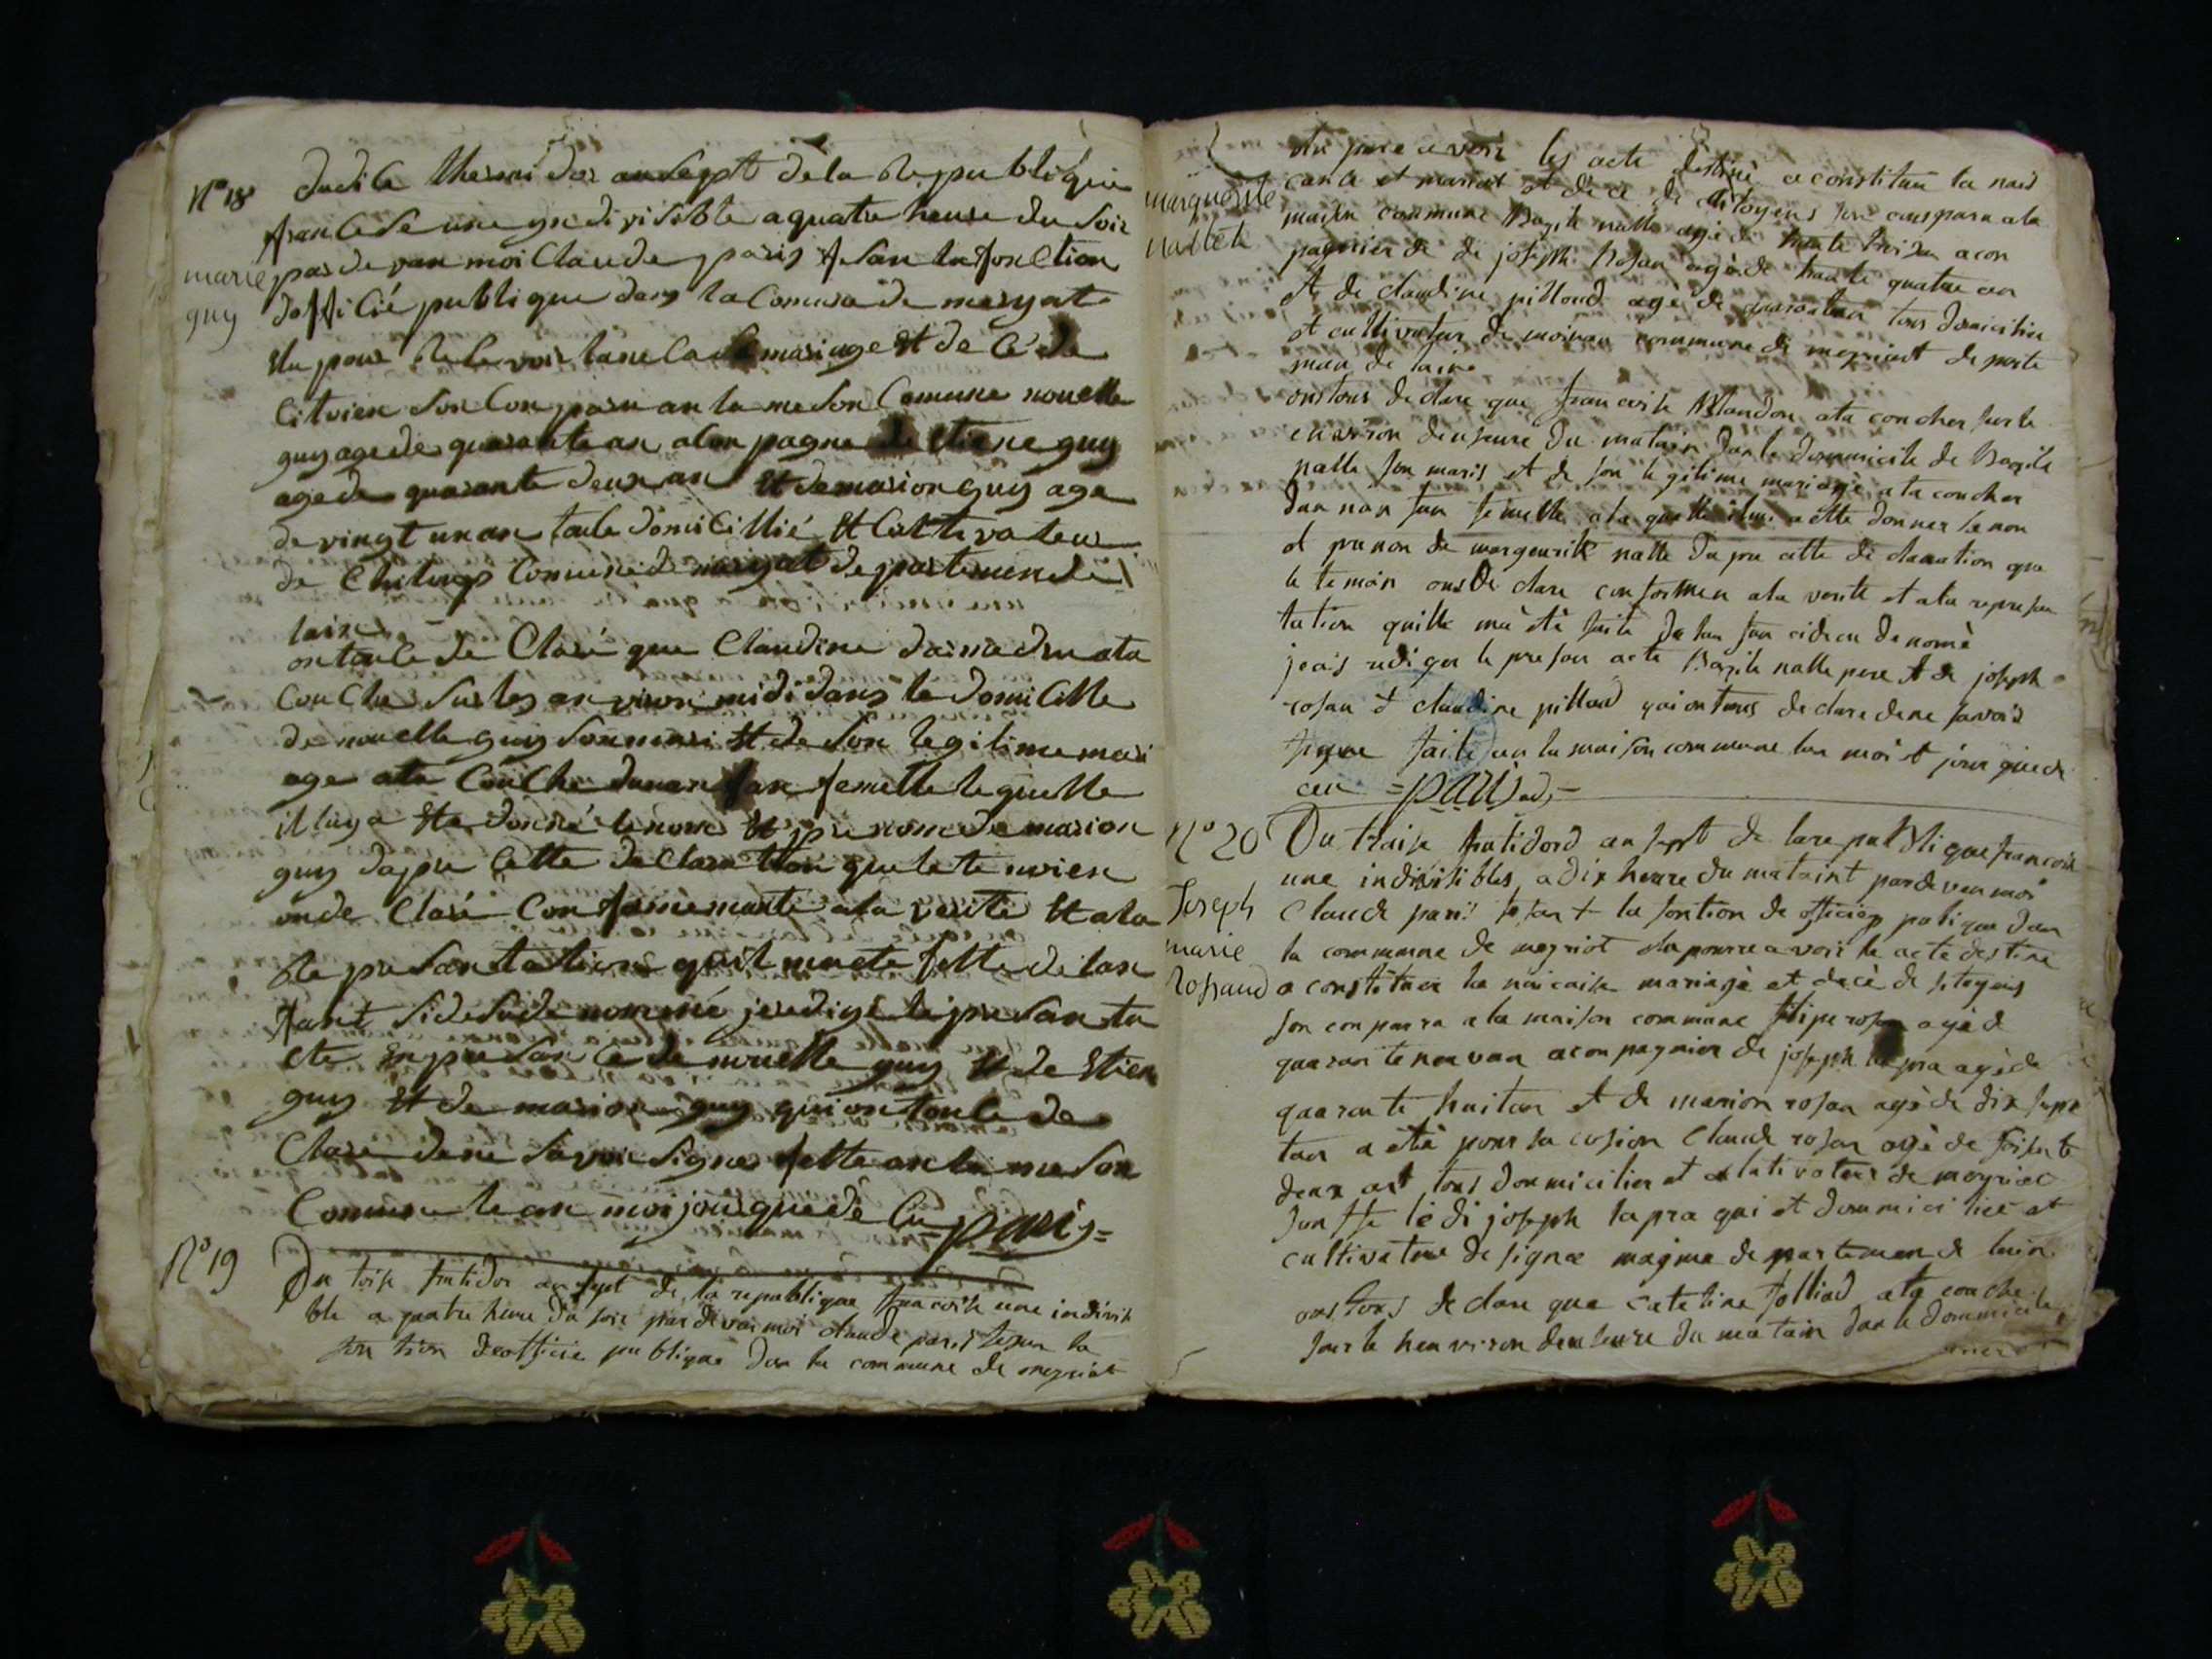 N° 18
marie
guy
dudi la thermidor an sept de la Republique
francese une yndivisible a quatre heure du soir
par devan moi Claude paris fesan la fonction
doffisié publique dans la Comune de meryat
elu pour
Citoien son Conparu an la meson Comune nouelle
guy age de quarante an aconpagne de Etiene guy
age de quarante deux an Et de marion guy age
de vingt un an toule domicillié Et Cultivateur
de Comune de meryat departemen de
lain
on toule de Claré que Claudine ata
Couche sur les anviron midi dans le domicille
de nouelle guy son mari Et de son legitime mari
age ata Couche dunan fan femelle lequelle
il luy a Ete donné le nom Et prenom de marion
guy dapre Cette declaration que le temoien
onde Claré Conformemante ala verite Et ala
Represantation quil mate fette de lan
fant sidesude nommé je redige le presanta
cte an presance de nouelle guy Et de Etien
guy Et de marion guy qui on toule de
Clare de ne savoir signer fette an la meson
Comune le an moi jour que de Cu paris=
N° 19
Du toise frutidor an sept de la republique francoise une indivisi
ble a quatre heure du soir par devan moi claude paris fesan la
fontion de officié publique dan la commune de meyriat
marguerite
nallet
elu pour a voir les acte destiné a constituee la nais
cance et mariat et de ce de citoyens son conspara ala
maison commune Bazile nalle agé de trante trois an acon
pagnier de de joseph Rosan agé de trante quatre an
et de claudine pilloud agé de quarantan tous domicilier
et cultivateur de moinan commune de meyriat de parte
man de lain
onstous declare que francoise Blandon ata coucher sur le
environ deuheure du matain dan le dommicile de Bazile
nalle son maris et de son legitime mariage ata coucher
dun nan fan femelle ala quelle il lui a ette donner le non
et prunon de margeurite nalle dapre cette declaration que
le temoin ons declare conformen ala verite et ala represen
tation quille ma été faite de lan fan cidesu denomé
jeais rediger le presen acte Bazile nalle pere et de joseph
rosan et claudine pilloud qui ontous declare dene savoir
signe faite an la maison commune lan moi et jour quede
ceu =paris=
N° 20
Joseph
marie
Rossand
Du traise frutidord an sept de la republique francoise
une indivisibles a dix heure du mataint pardevan moi
Claude paris fesan + la fontion de officier publique dan
la commune de meyriot elu pourre a voir le acte destine
a constituee la naicaise mariage et decé de sitoyens
son conparra a la maison commune filipe rosan agé de
quarante neuvan aconpagnier de joseph lapra agé de
quarante huitan et de marion rosan agé de dix sept
tan a été pour sa cosion Claude rosan agé de soisante
deux ant tous dommicilier et cultivateur de meyriat
sanste lé di joseph lapra qui et dommicilié et
cultivateur de signe magna departeman de lain
ons tous declare que cateline folliad ata couche
sur le hen viron deu heure du matain dan le dommicile